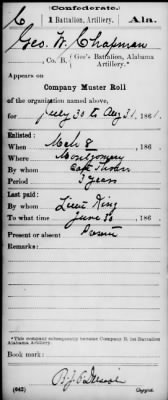 (Confederate.)
C 1 Battalion, Artillery. Ala.
Geo. W. Chapman
, Co. B, (Gee's Battalion, Alabama Artillery.*
Appears on
Company Muster Roll
of the organization named above,
for July 30 to Aug 31, 1861.
Enlisted:
When Mch 8, 186 .
Where Montgomery
By whom Capt
Period 3 years
Last paid:
By whom Lieut King
To what time June 30, 186 .
Present or absent Present
Remarks:
*This company subsequently became Company B, 1st Battalion Alabama Artillery.
Book mark:
(642) Copyist.